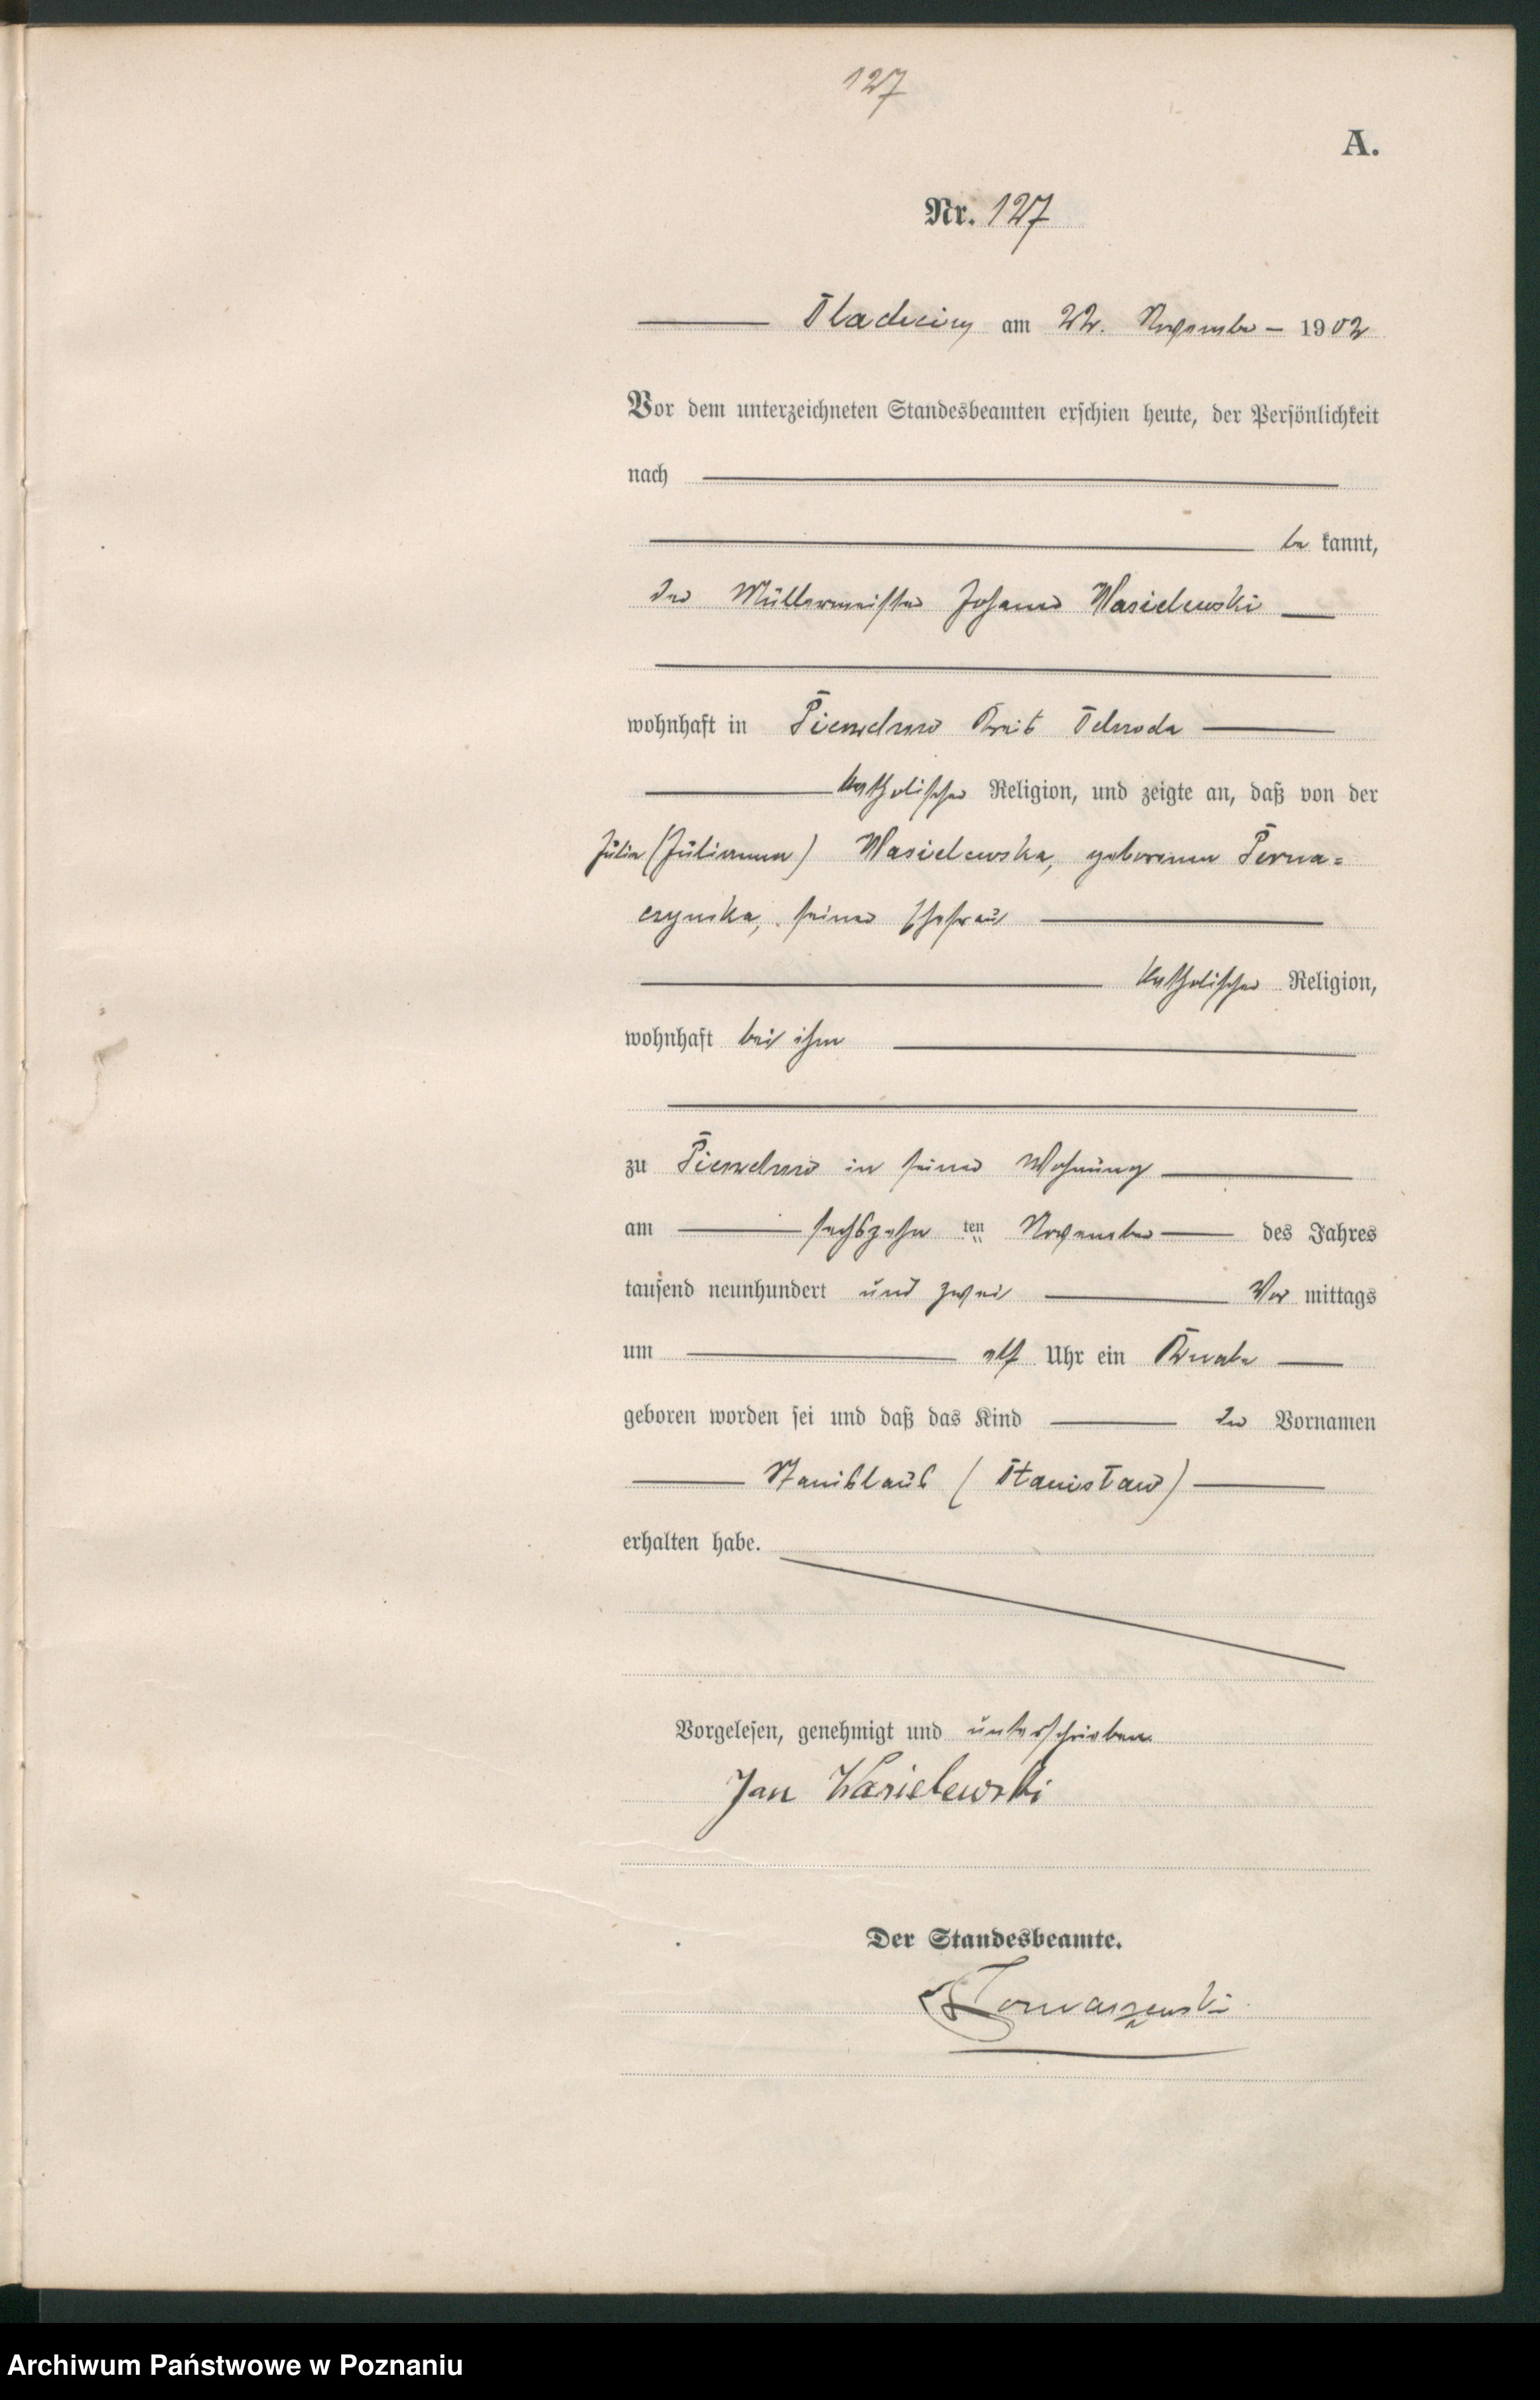 127
A.
Nr. 127
am 22. November 1902
Vor dem unterzeichneten Standesbeamten erschien heute, der Persönlichkeit
nach
be kannt,
der Müllermeister Johann Wasielewski
wohnhaft in Kreis Schroda
katholischer Religion, und zeigte an, daß von der
Julia (Julianna) Wasielewska, geborenen
seiner Ehefrau
katholischer Religion,
wohnhaft bei ihm
zu in seiner Wohnung
am sechszehn ten November des Jahres
tausend neunhundert und zwei Vor mittags
um elf Uhr ein Knabe
geboren worden sei und daß das Kind den Vornamen
Stanislaus (Stanisław)
erhalten habe.
Vorgelesen, genehmigt und unterschrieben
Jan Wasielewski
Der Standesbeamte.
Tomaszewski
Archiwum Państwowe w Poznaniu